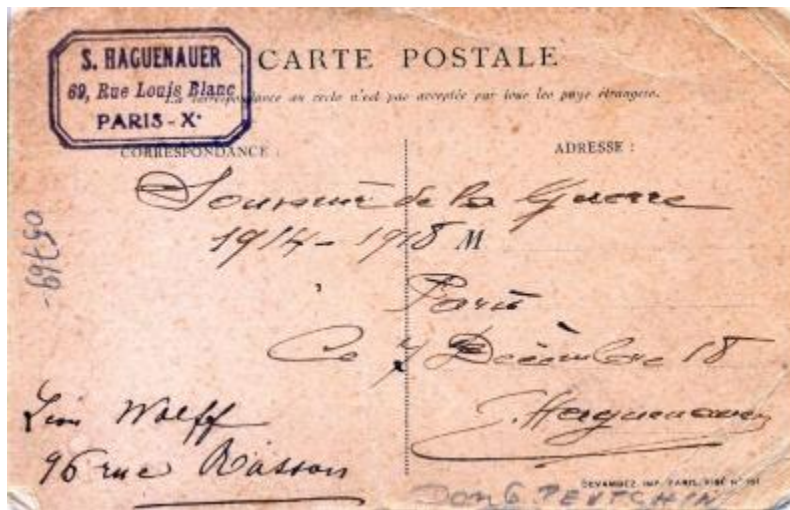 S. HAGUENAUER
69, Rue Louis Blanc
PARIS - X.
CARTE POSTALE
La correspondance au recto n'est pas acceptée par tous les pays étrangers.
CORRESPONDANCE :
ADRESSE :
Souvenir de la Guerre
1914 - 1918
M
Paris
Ce 7 Décembre 18
S. Haguenauer
Wolff
96 rue
05769-
DEVAMBEZ, IMP. PARIS, VISÉ N°
DON G. PEVTCHIN